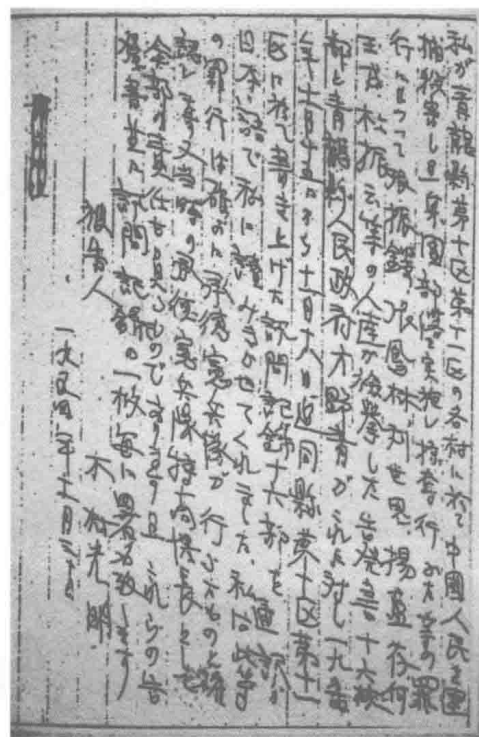 私が青龍縣第十区第十一区の各村に於て中國人民を
捕殺 し 集團部落を実施し 行 た等の罪
行によって張振鐸、張鳳林、刘 恩、揚盛存、何
玉成、杜振云等の人達が検挙した告発書十六
部と青龍縣人民政府 が之れに対し一九五四
年十一月十五日から十一月十八日迠同縣第十区第十一
区に於て書き上げた訊問記録十六部を通訳が
日本語で私に讀みきかせてくれました。私は此等
の罪行は確かに承徳憲兵隊が行ったものと確
認し 又当時の承徳憲兵隊 長として
全部の責任を負ふものであります且これらの告
發書並に訊問記録の一枚毎に署名致します
報告人 木村光明
一九五四年十一月 日